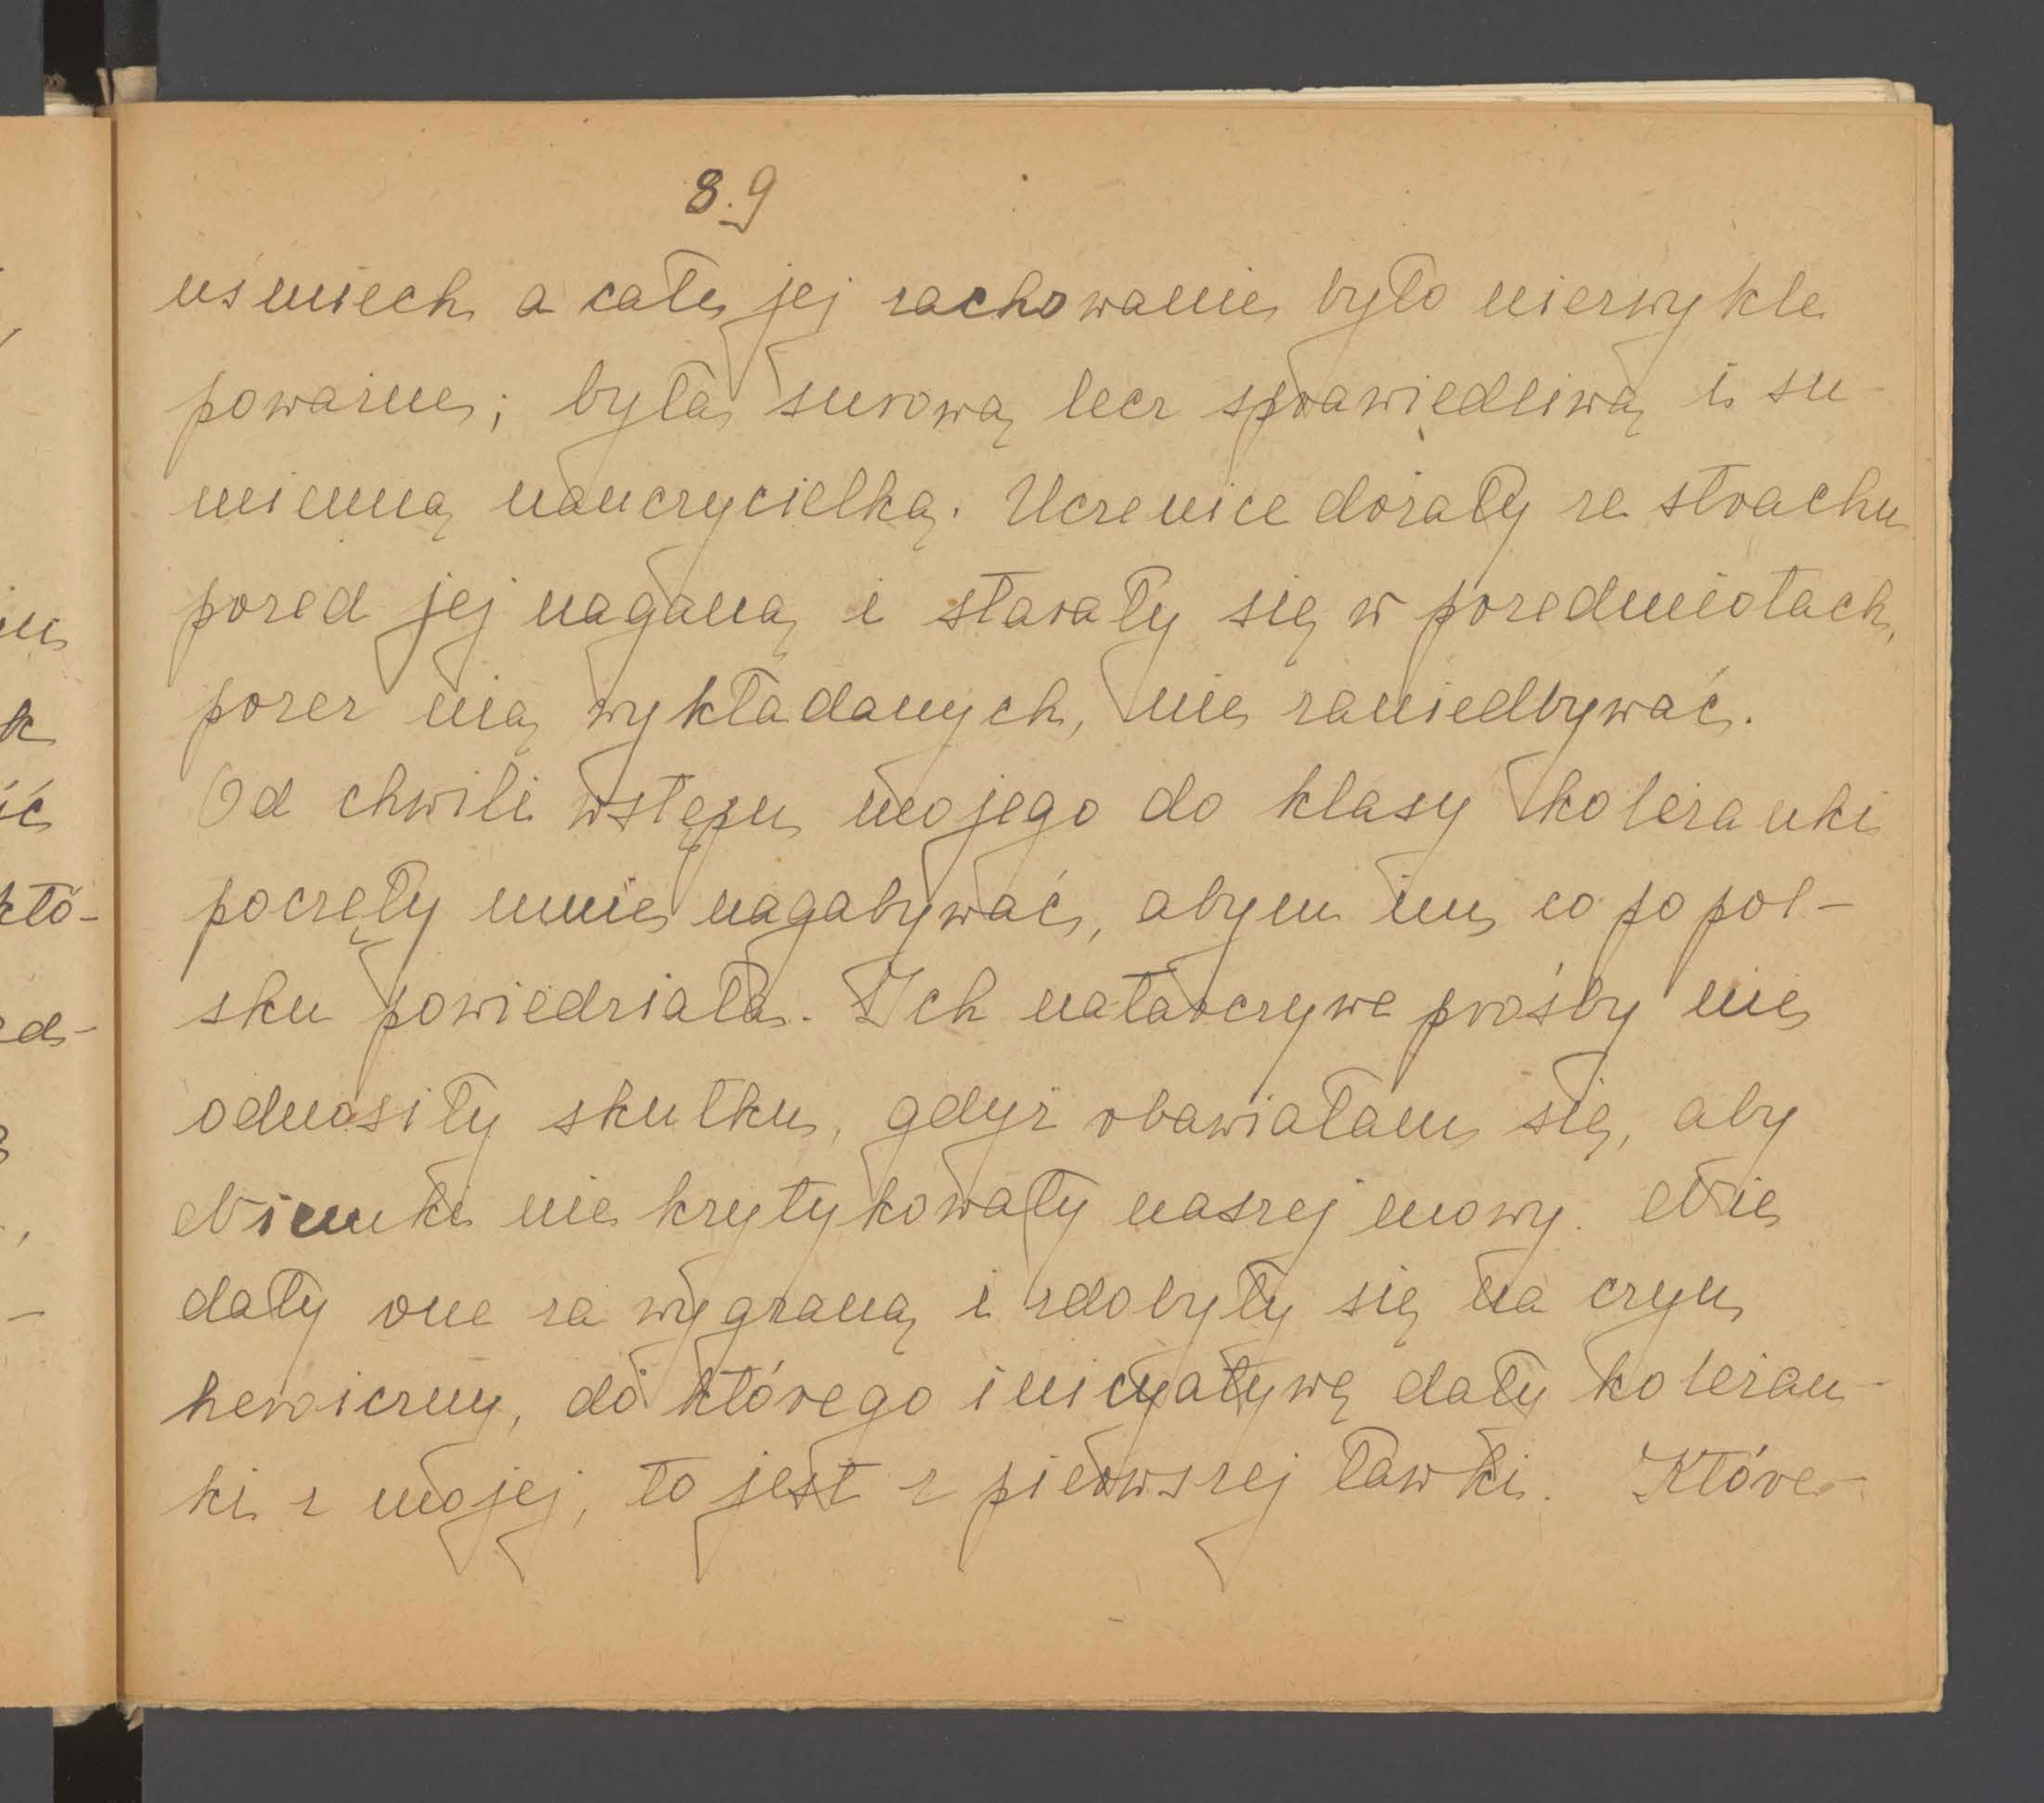 8.9
uśmiech a całe jej zachowanie było niezwykle
poważne; była surową lecz sprawiedliwą i su-
mienną nauczycielką. Uczenice drżały ze strachu
przed jej naganą i starały się w przedmiotach,
przez nią wykładanych, nie zaniedbywać.
Od chwili wstępu mojego do klasy koleżanki
poczęły mnie nagabywać, abym im co po pol-
sku powiedziała. Ich natarczywe prośby nie
odnosiły skutku, gdyż obawiałam się, aby
Niemki nie krytykowały naszej mowy. Nie
dały one za wygraną i zdobyły się na czyn
heroiczny, do którego inicyatywę dały koleżan-
ki z mojej, to jest z pierwszej ławki. Które-